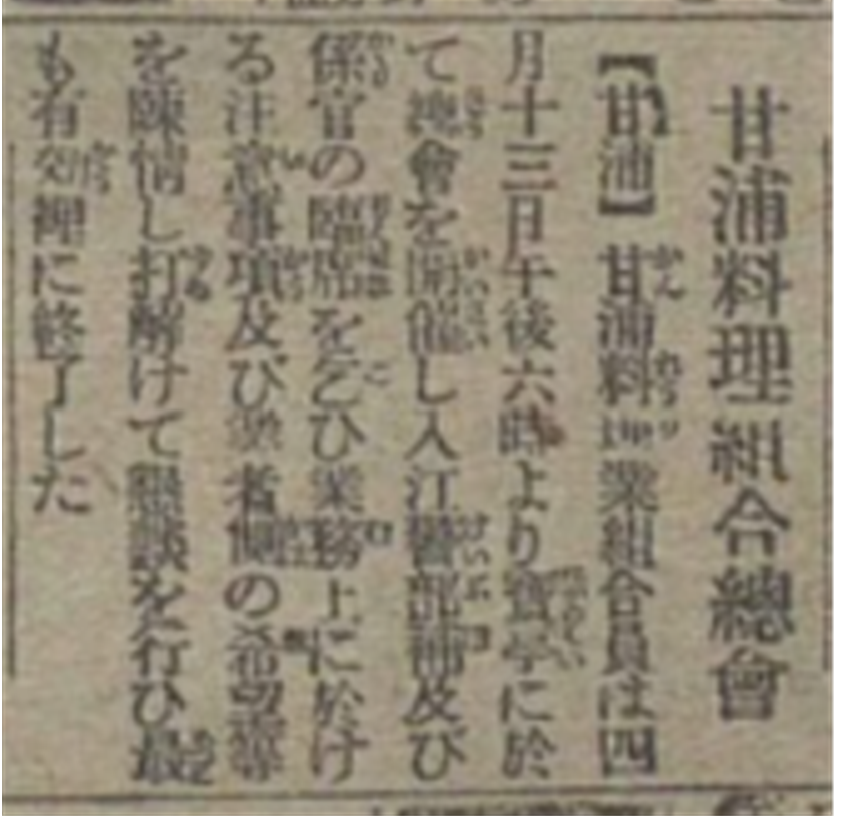 甘浦料理組合總會
【甘浦】甘浦料理業組合員は四
月十三日午後六時より寶亭に於
て總會を開催し入江警部補及び
係官の臨席を乞ひ業務上に於け
る注意事項及び業者側の希望等
を陳情し打解けて懇談を行ひ最
も有効裡に終了した